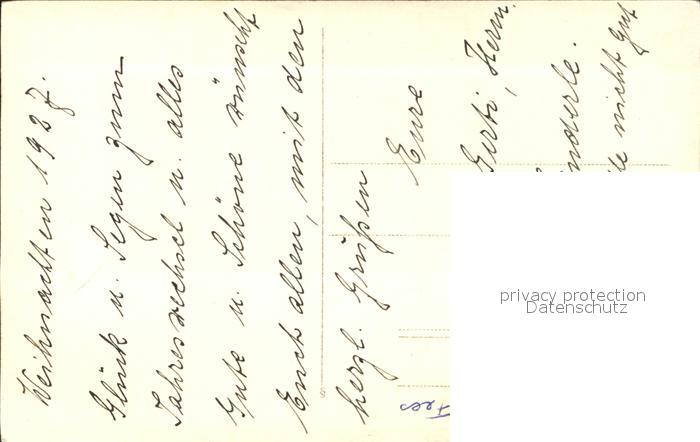 Weihnachten 1927.
Glück u. Segen zum
Jahreswechsel u. alles
Gute u. Schöne wünscht
Euch allen, mit den
herzl. Grüßen
Eure
Gerti, Herm.
nicht gut
privacy protection
Datenschutz